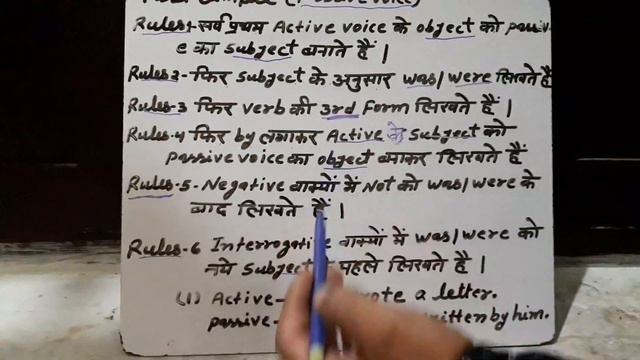 Rules-1-सर्व प्रथम Active voice के object को passiv-
e का subject बनाते हैं |
Rules-2- फिर subject के अनुसार was/were लिखते हैं
Rules-3 फिर verb की 3rd Form लिखते हैं |
Rules-4 फिर by लगाकर Active के subject को
passive voice का object बनाकर लिखते हैं
Rules-5-Negative वाक्यों में Not को was/were के
बाद लिखते हैं |
Rules-6 Interrogative वाक्यों में was/were को
नये subject पहले लिखते हैं |
(1) Active- a letter.
passive- by him.